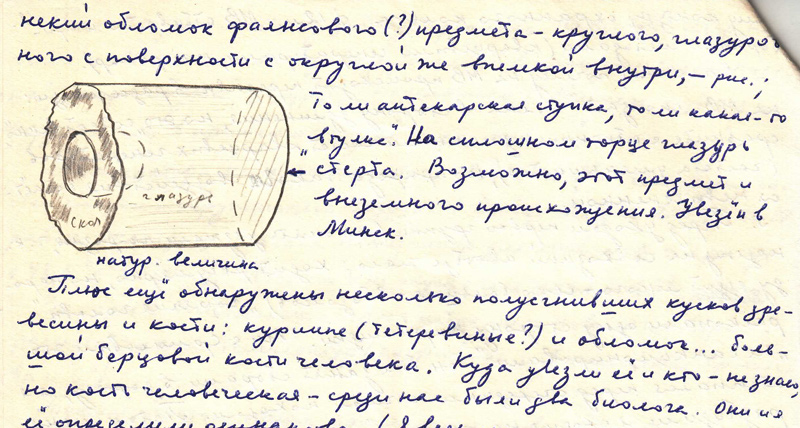 некий обломок фаянсового (?) предмета - круглого, глазуро
ного с поверхности с округлой же выемкой внутри, - рис.;
То ли аптекарская ступка, то ли какая-то
"втулка". На сплошном торце глазурь
стерта. Возможно, этот предмет и
внеземного происхождения. Увезён в
Минск.
скол
глазурь
натур. величина
Плюс ещё обнаружены несколько полусгнивших кусков дре-
весины и кости: курлине (тетеревиные?) и обломок... боль-
шой берцовой кости человека. Куда увезли её и кто - не знаю,
но кость человеческая - среди нас были два биолога. Они и
её определили